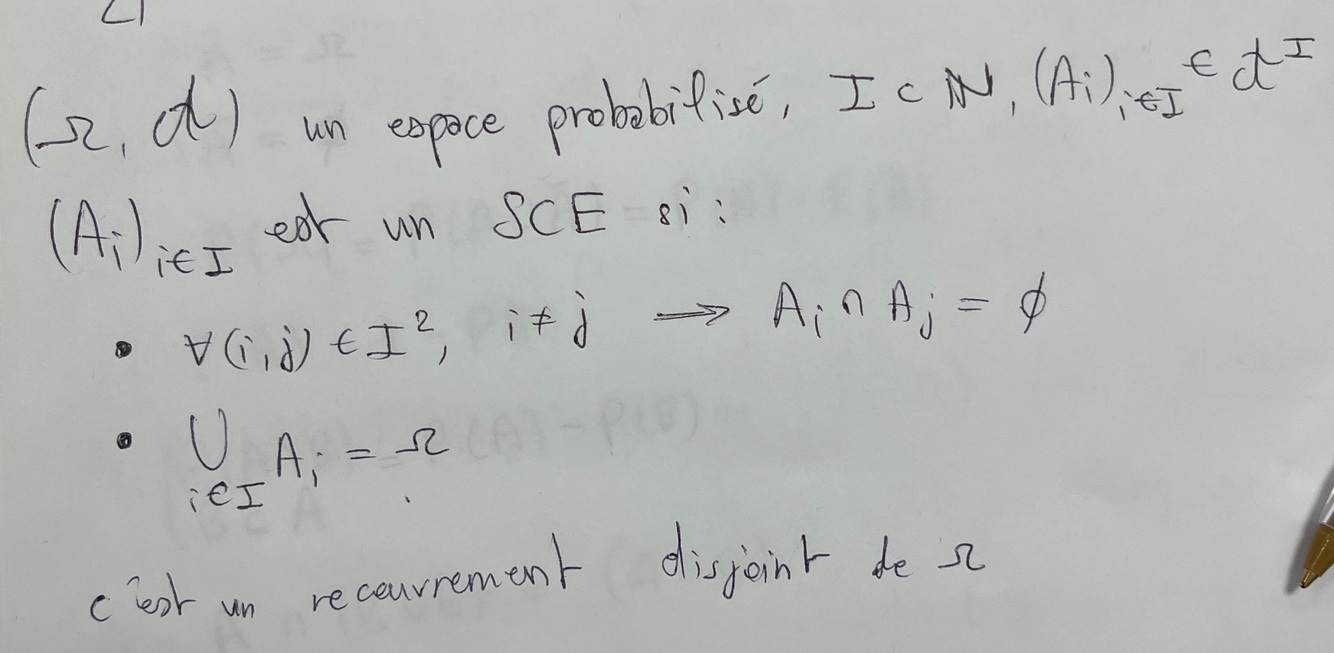 (Ω, 𝒜) un espace probabilisé, I ⊂ ℕ, (Ai)i∈I ∈ 𝒜^I
(Ai)i∈I est un SCE si :
• ∀(i,j) ∈ I², i ≠ j → Ai ∩ Aj = ∅
• ⋃i∈I Ai = Ω
c'est un recouvrement disjoint de Ω